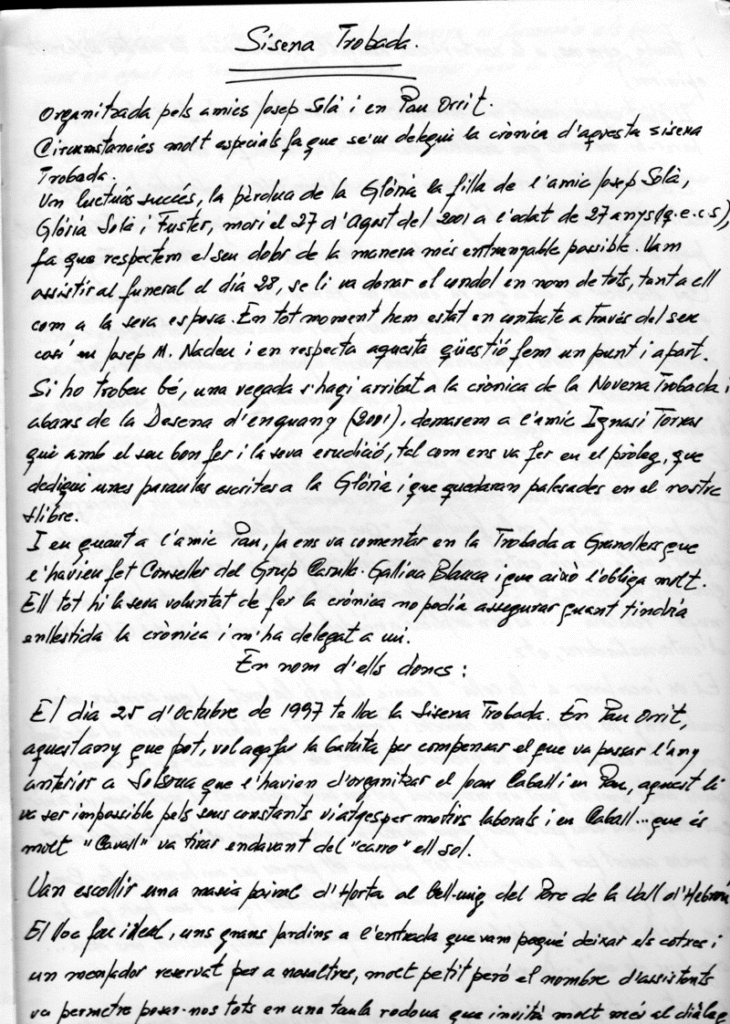 Sisena Trobada.
Organitzada pels amics Josep Solà i en Pau Orrit.
Circumstancies molt especials fa que se'm delegui la crònica d'aquesta sisena
Trobada.
Un luctuós succés, la pèrdua de la Glòria la filla de l'amic Josep Solà,
Glòria Solà i Fuster, morí el 27 d'Agost del 2001 a l'edat de 27 anys (q.e.c.s),
fa que respectem el seu dolor de la manera més entranyable possible. Vam
assistir al funeral el dia 28, se li va donar el condol en nom de tots, tant a ell
com a la seva esposa. En tot moment hem estat en contacte a través del seu
cosí en Josep M. Nadeu i en respecta aquesta qüestió fem un punt i apart.
Si ho trobeu bé, una vegada s'hagi arribat a la crònica de la Novena Trobada i
abans de la Desena d'enguany (2001), demarem a l'amic Ignasi Torras
qui amb el seu bon fer i la seva erudició, tal com ens va fer en el pròleg, que
dediqui unes paraules escrites a la Glòria i que quedaran palesades en el nostre
llibre.
I en quant a l'amic Pau, ja ens va comentar en la Trobada a Granollers que
l'havien fet Conseller del Grup Carulla-Gallina Blanca i que això l'obliga molt.
Ell tot hi la seva voluntat de fer la crònica no podia assegurar quant tindria
enllestida la crònica i m'ha delegat a mi.
En nom d'ells doncs:
El dia 25 d'Octubre de 1997 té lloc la Sisena Trobada. En Pau Orrit,
aquest any que pot, vol agafar la batuta per compensar el que va passar l'any
anterior a Solsona que l'havien d'organitzar el Joan Caball i en Pau, aquest li
va ser impossible pels seus constants viatges per motius laborals i en Caball... que és
molt "Cavall" va tirar endavant del "carro" ell sol.
Van escollir una masia pairal d'Horta al bell-mig del Parc de la Vall d'Hebrón
El lloc fou ideal, uns grans jardins a l'entrada que vam pogué deixar els cotxes i
un menjador reservat per a nosaltres, molt petit però el nombre d'assistents
va permetre posar-nos tots en una taula rodona que invità molt més al diàleg